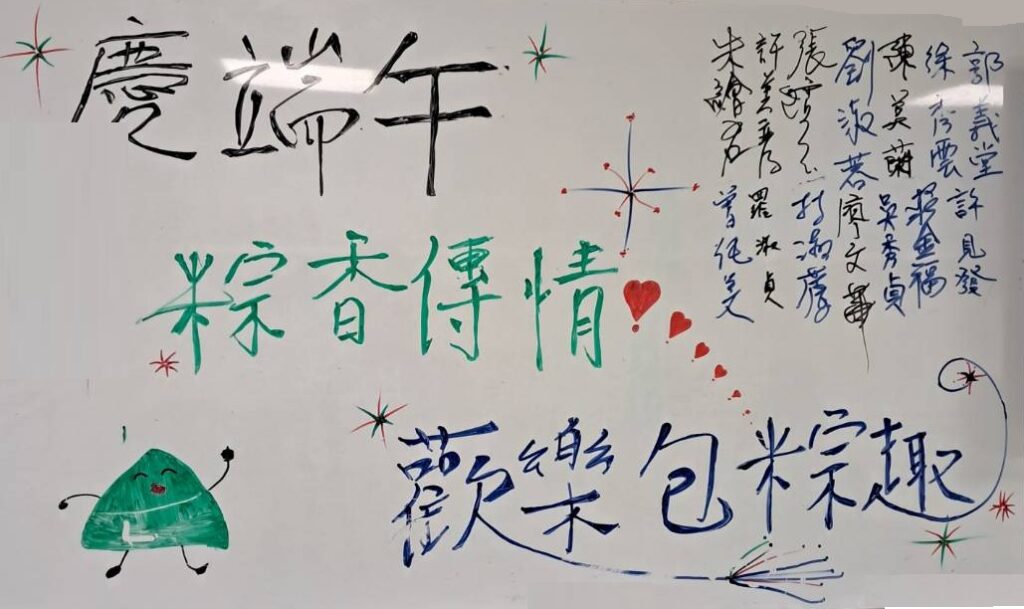 慶端午
粽香傳情
歡樂包粽趣
郭義堂 許見發
徐秀雲 金福
陳英蘭 吳秀貞
劉淑蓉 廖文華
張
許美秀 羅淑貞
朱 曾純美